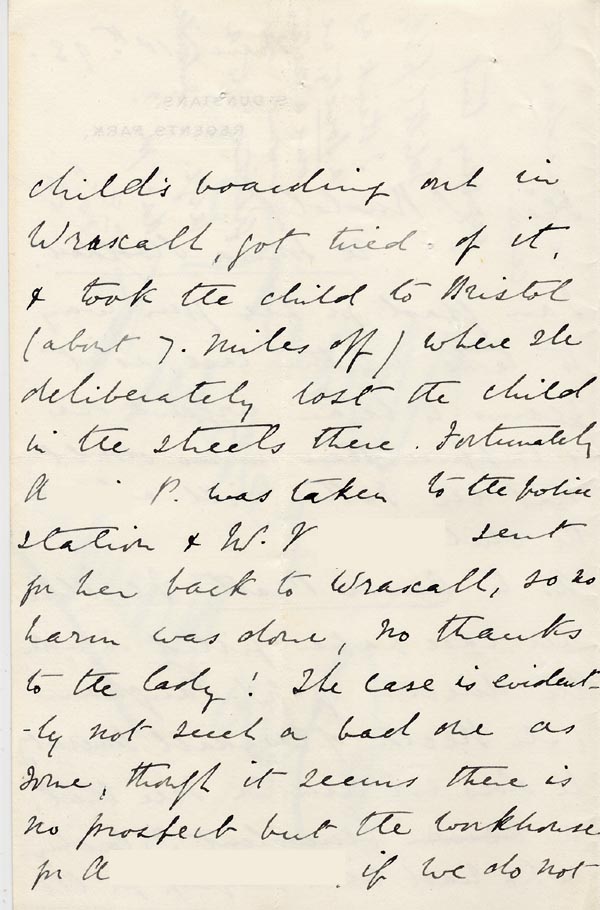 child's boarding out in
Wraxall, got tired of it,
& took the child to Bristol
(about 7. miles off) where she
deliberately lost the child
in the streets there. Fortunately
A P. was taken to the police
station & W. V sent
for her back to Wraxall, so no
harm was done, no thanks
to the lady! The case is evident-
-ly not such a bad one as
some, though it seems there is
no prospect but the workhouse
for A . if we do not
ST DUNSTANS,
REGENTS PARK.